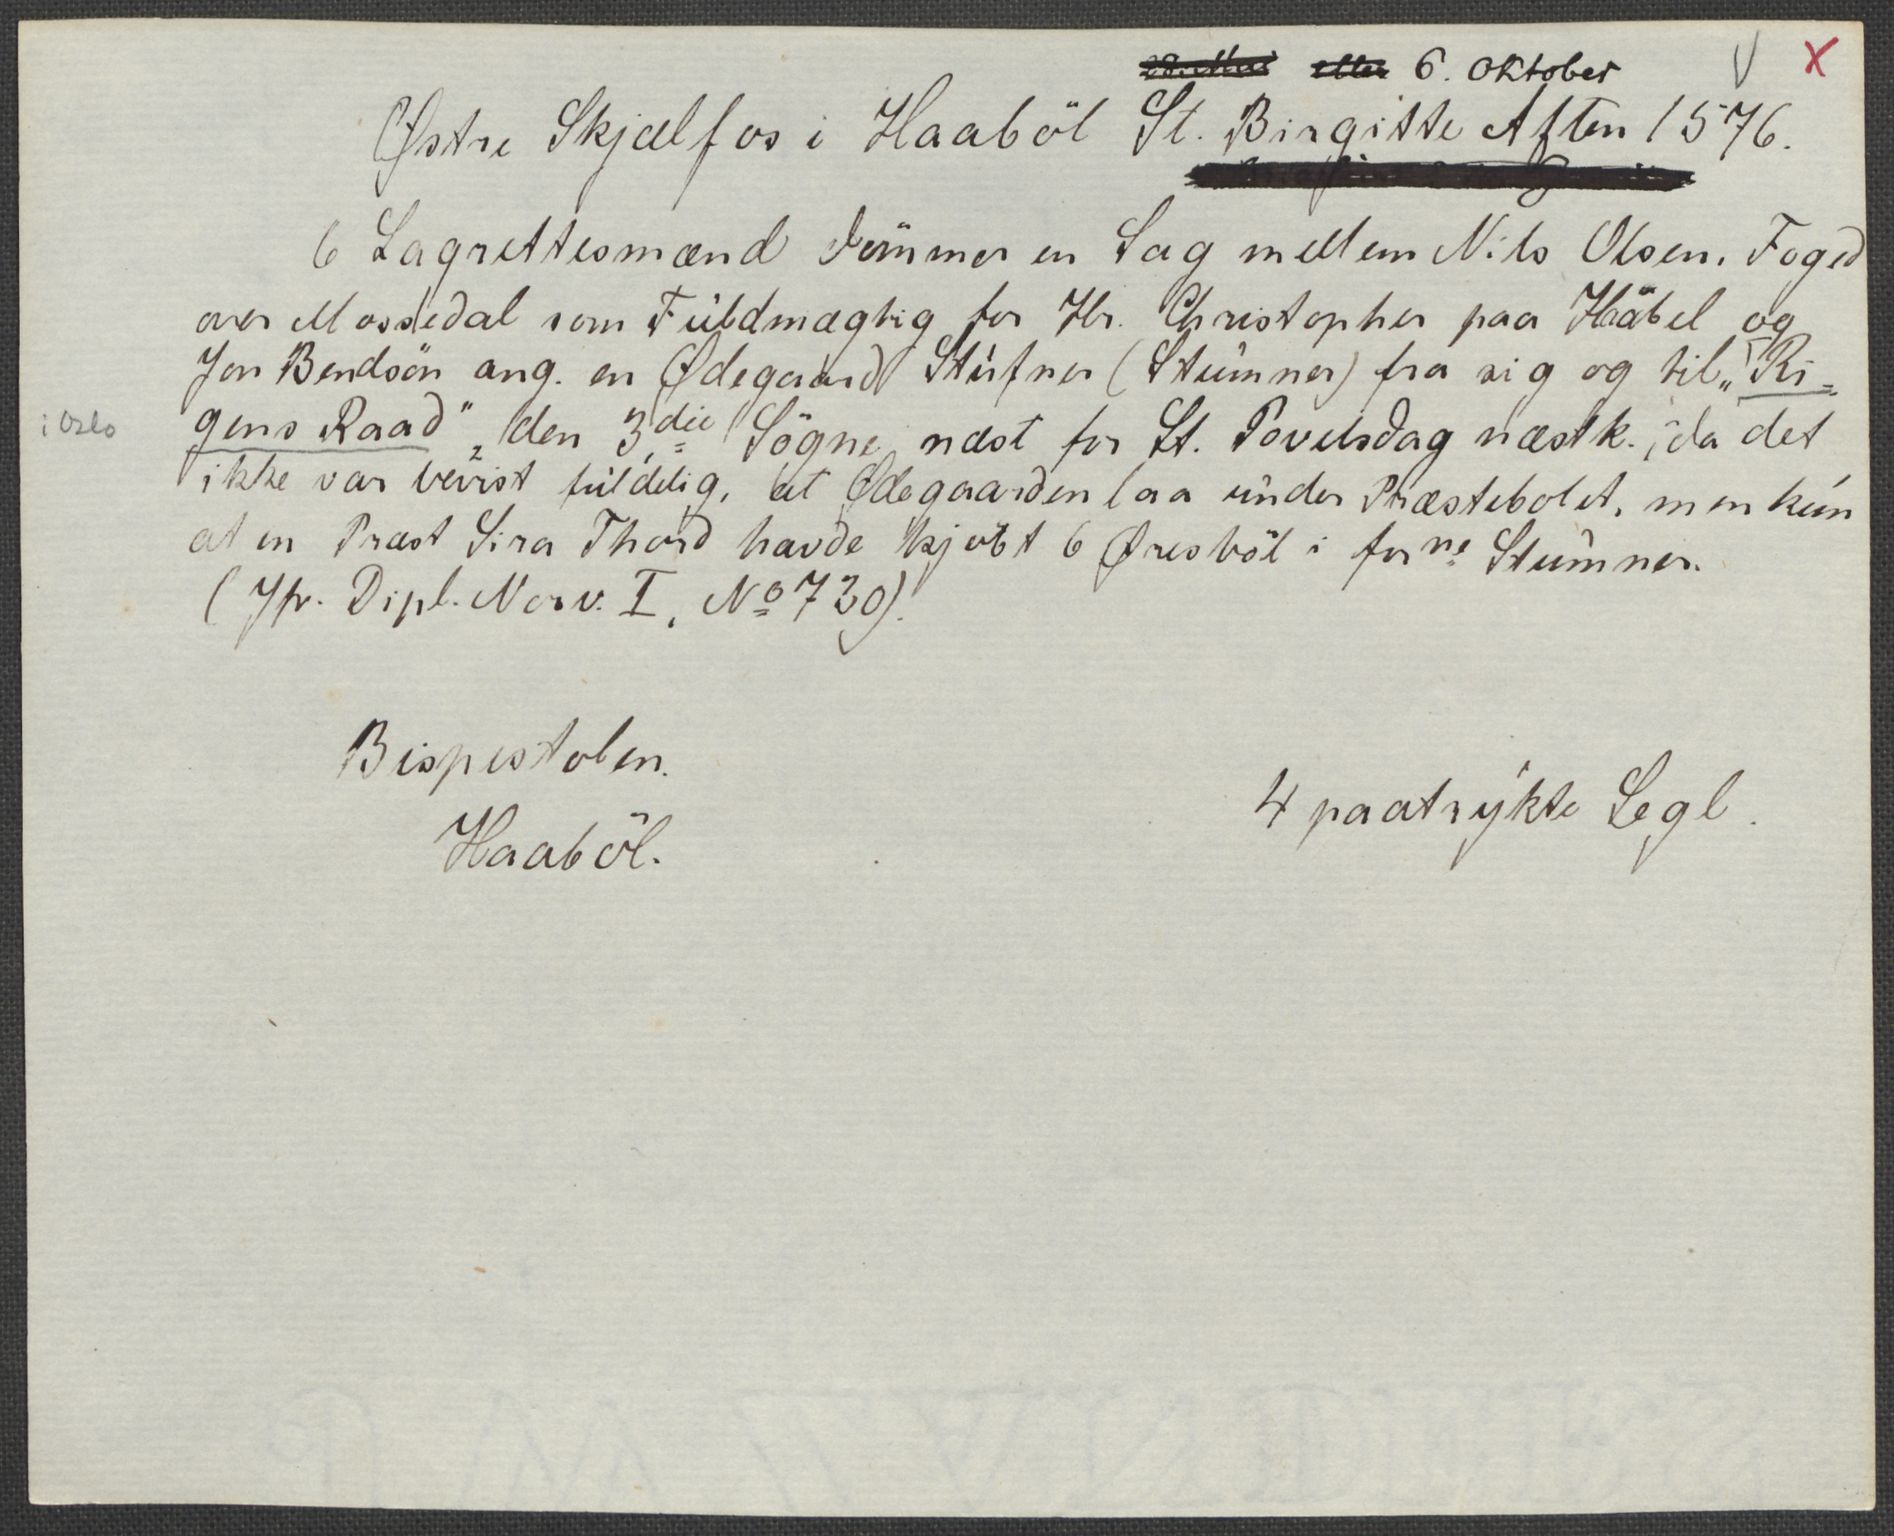 6. Oktober V X
Østre Skjælfos i Haaböl St. Birgitte Aften 1576.
6 Lagrettesmænd dömmer en Sag mellem Nils Olsen, Foged
over Mossedal som Fuldmægtig for Hr. Christopher paa Håbel og
Jon Bendsön ang. en Ødegaard Stufner (Stumner) fra sig og til „Ri=
gens Raad" i Oslo den 3die Sögne næst for St. Povelsdag næstk., da det
ikke var bevist fuldelig, at Ødegaarden laa under Præstebolet, men kun
at en Præst Sira Thord havde kjöbt 6 Øresböl i forne Stumner.
(Jfr. Dipl. Norv. I, No 730).
Bispestolen.
4 paatrykte Segl.
Haaböl.